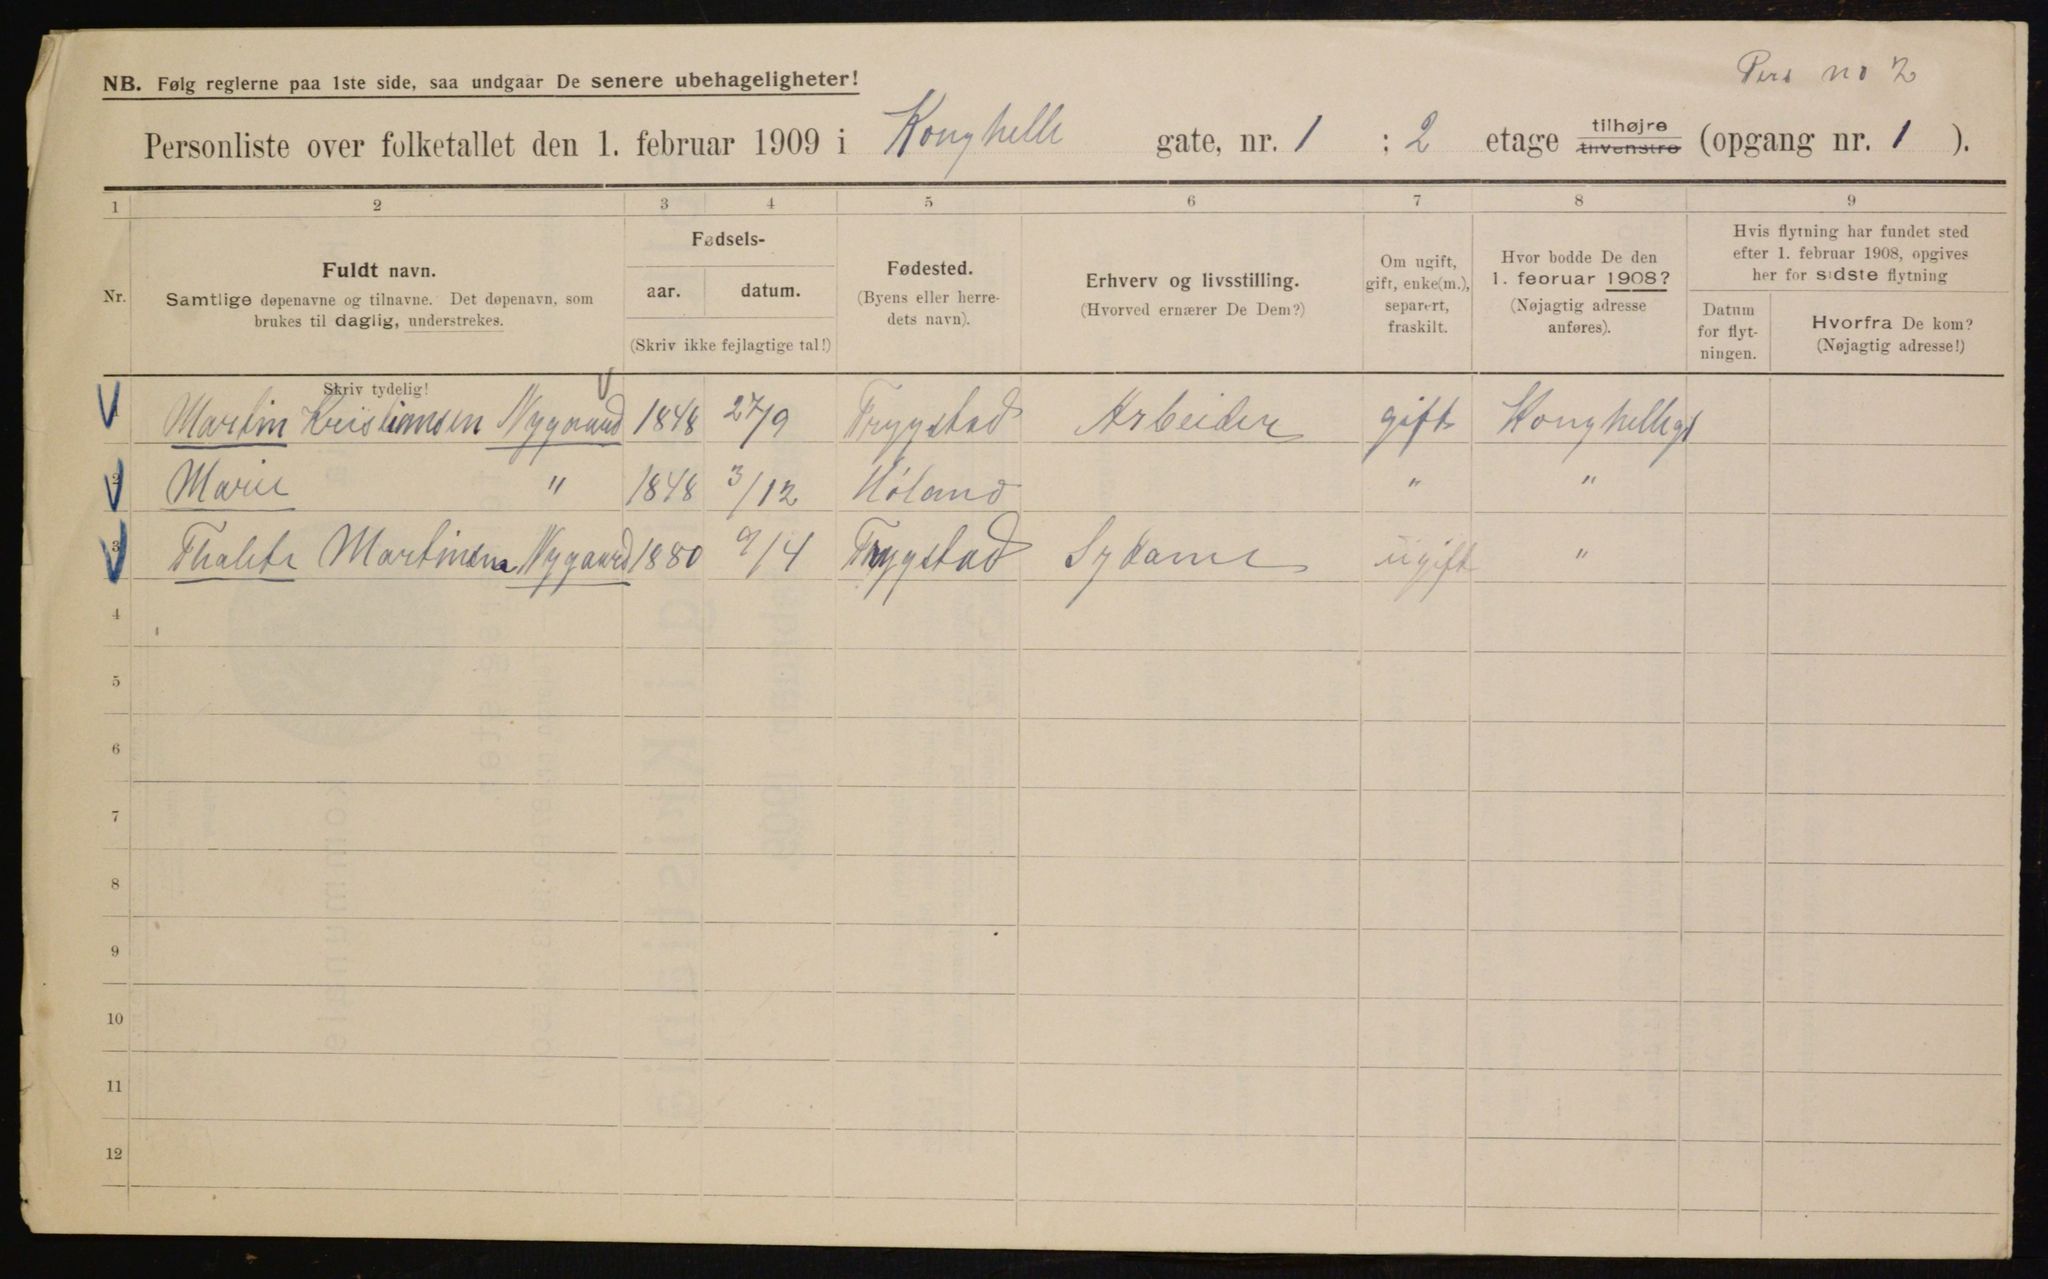 Pers no 2
NB. Følg reglerne paa 1ste side, saa undgaar De senere ubehageligheter!
Personliste over folketallet den 1. februar 1909 i Konghelle gate, nr. 1 : 2 etage tilhøjre tilvenstre (opgang nr. 1 ).
1 2 3 4 5 6 7 8 9
Nr.
Fuldt navn.
Samtlige døpenavne og tilnavne. Det døpenavn, som
brukes til daglig, understrekes.
Skriv tydelig!
Fødsels-
aar. datum.
(Skriv ikke fejlagtige tal!)
Fødested.
(Byens eller herre-
dets navn).
Erhverv og livsstilling.
(Hvorved ernærer De Dem?)
Om ugift,
gift, enke(m.),
separert,
fraskilt.
Hvor bodde De den
1. februar 1908?
(Nøjagtig adresse
anføres).
Hvis flytning har fundet sted
efter 1. februar 1908, opgives
her for sidste flytning
Datum
for flyt-
ningen.
Hvorfra De kom?
(Nøjagtig adresse!)
1 Martin Kristiansen Nygaard 1848 27/9 Trygstad Arbeider gift Konghellegt
2 Marie " 1848 3/12 Høland " "
3 Thalete Martinsen Nygaard 1880 9/4 Trygstad Sydame ugift "
4
5
6
7
8
9
10
11
12